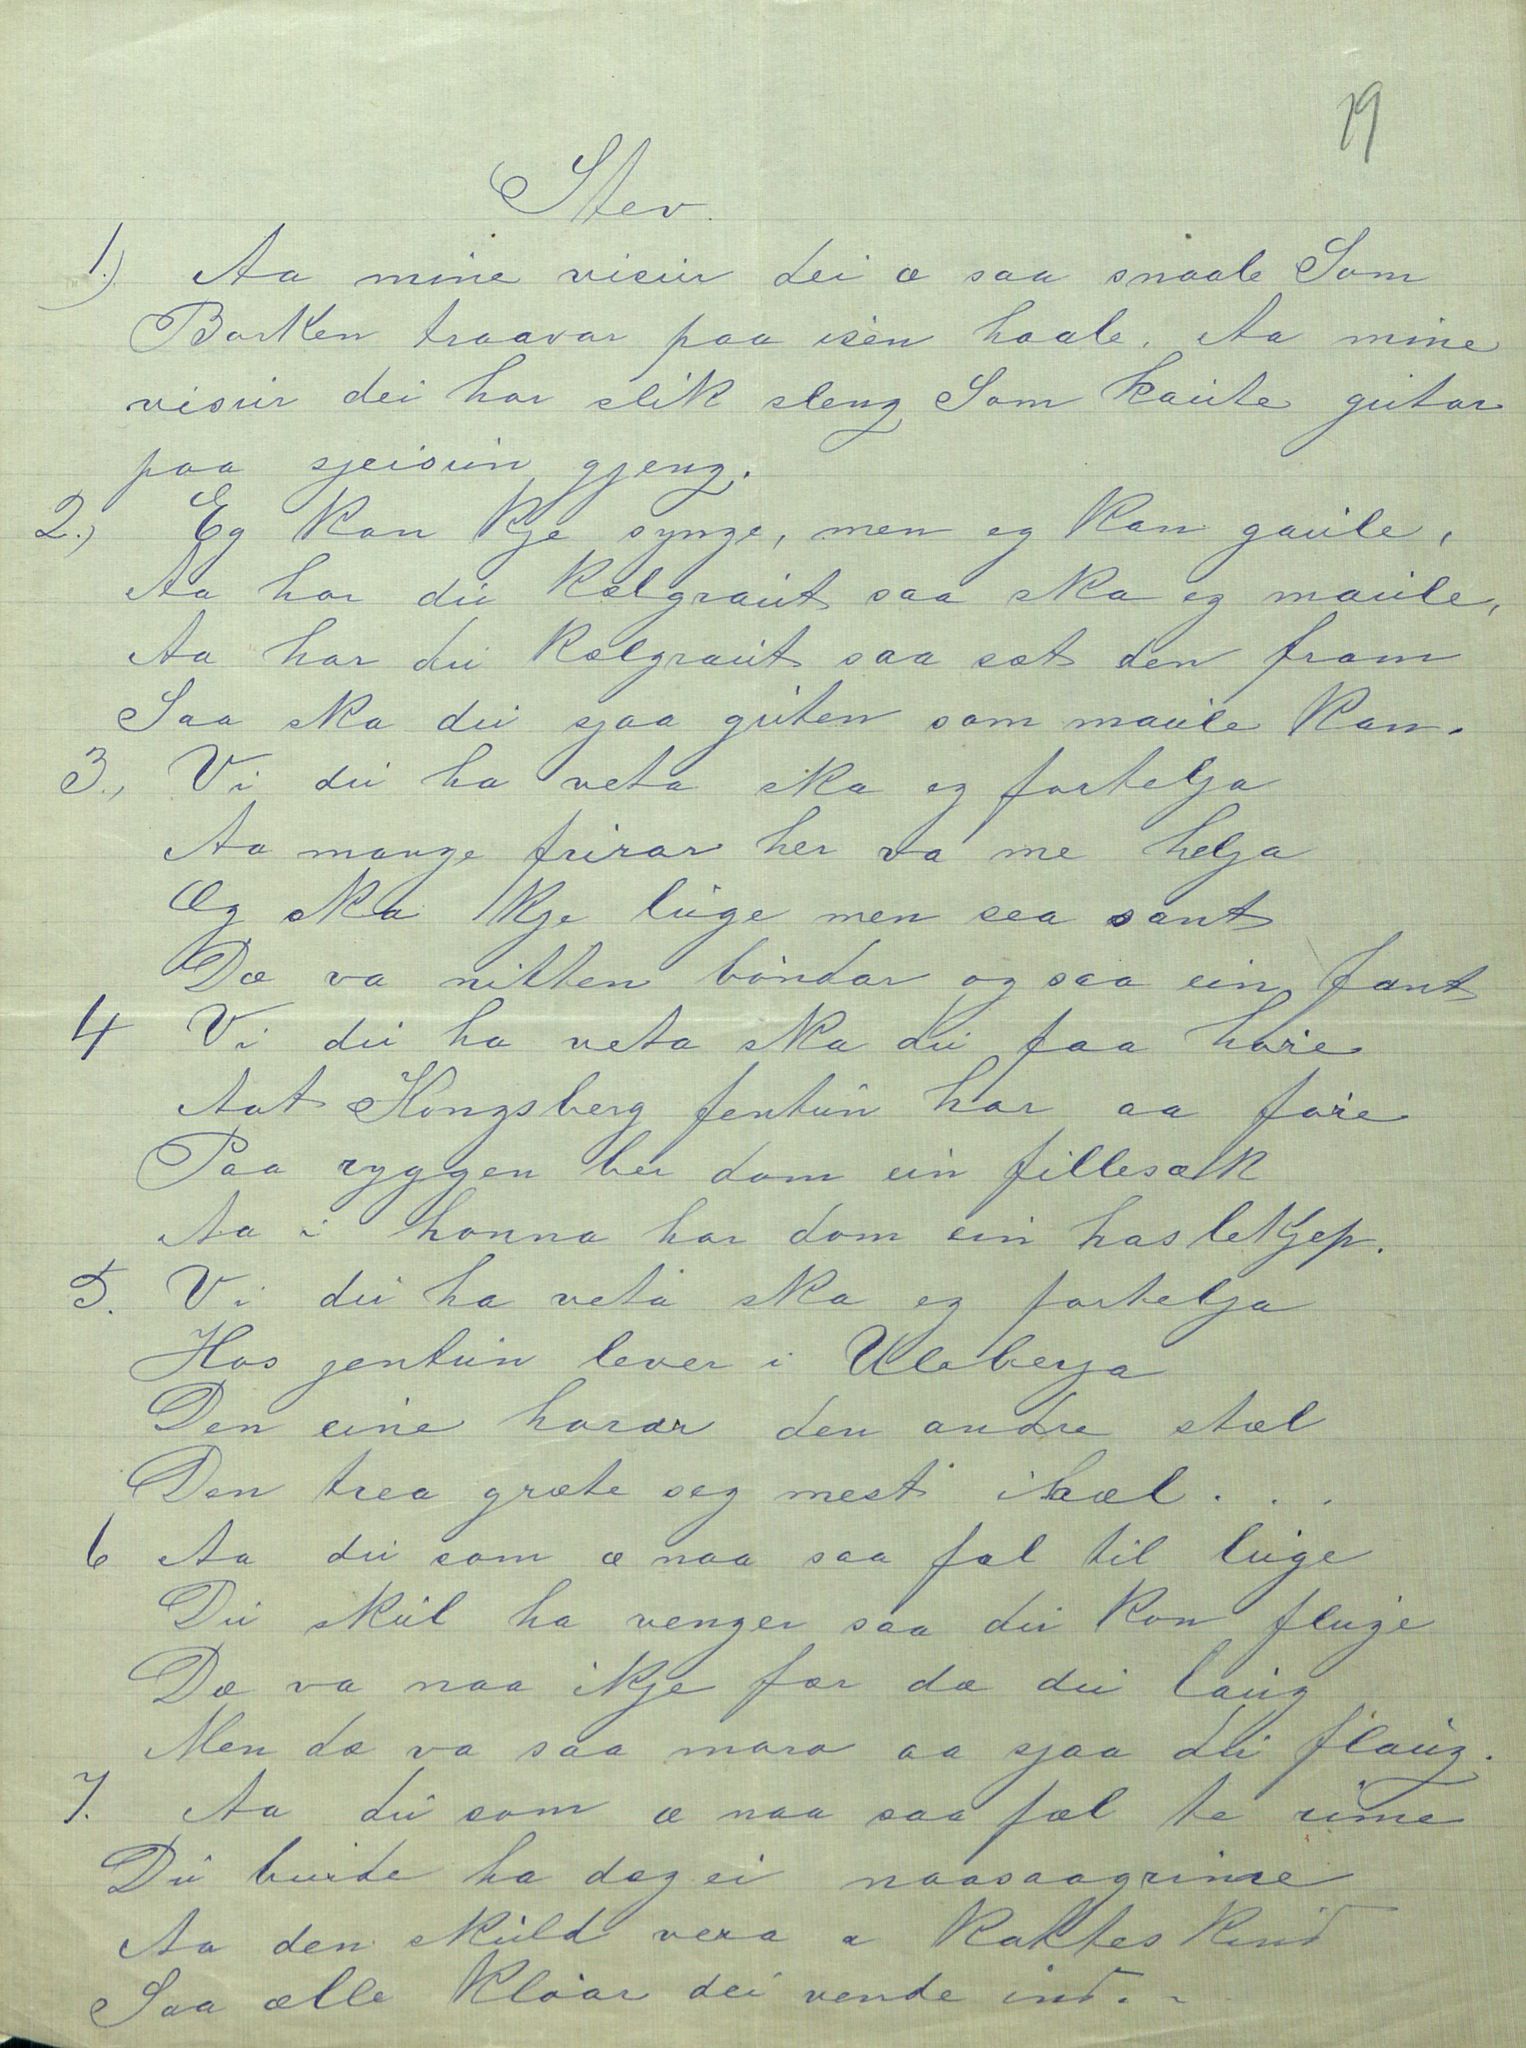 19
Stev.
1.) Aa mine visur dei æ saa snaale Som
Borken traavar paa isen haale. Aa mine
visur dei har slik sleng Som kaute gutar
paa sjeisun gjeng.
2.) Eg kan kje synge, men eg kan gaule,
Aa har du kælgraut saa ska eg maule,
Aa har du kælgraut saa sæt den fram
Saa ska du sjaa guten som maule kan.
3., Vi du ha veta ska eg fortelja
Aa mange frirar her va me helja
Eg ska kje luge men sea sant
Dæ va nitten böndar og saa ein fant
4 Vi du ha veta ska du faa höre
Aat Kongsberg fentun har aa före
Paa ryggen ber dom ein fillesæk
Aa i honna har dom ein haslekjep.
5. Vi du ha veta ska eg fortelja
Hos jentun lever i Uleberja
Den eine horar den andre stæl
Den trea græte seg mest ihæl . . .
6 Aa du som æ naa saa fæl til luge
Du skul ha venger saa du kon fluge
Dæ va naa ikje for dæ du laug
Men dæ va saa mora aa sjaa du flaug.
7. Aa du som æ naa saa fæl te rime
Du burde ha deg ei naasaagrime
Aa den skuld vera a katteskind
Saa ælle klöar dei vende ind. -